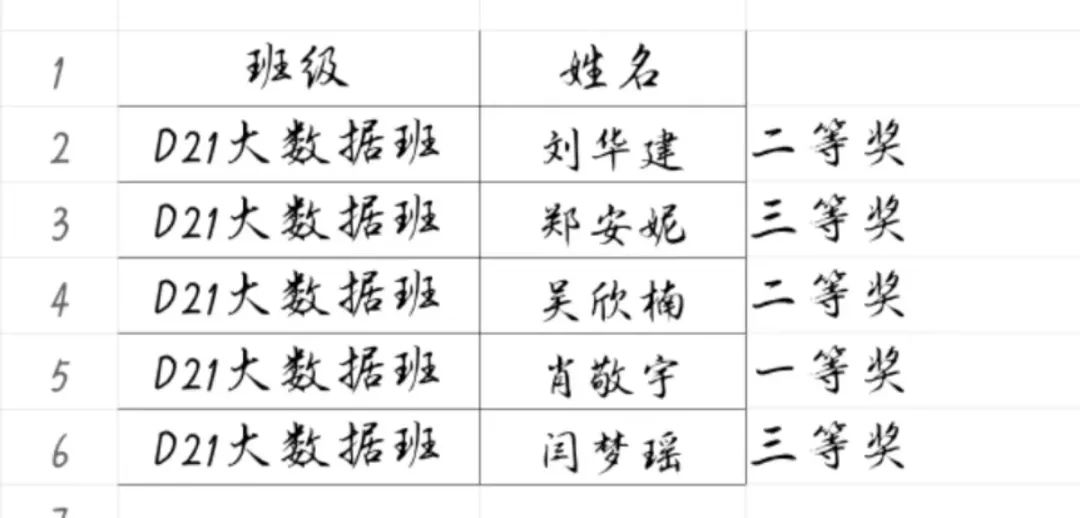 1 班级 姓名
2 D21大数据班 刘华建 二等奖
3 D21大数据班 郑安妮 三等奖
4 D21大数据班 吴欣楠 二等奖
5 D21大数据班 肖敬宇 一等奖
6 D21大数据班 闫梦瑶 三等奖
7